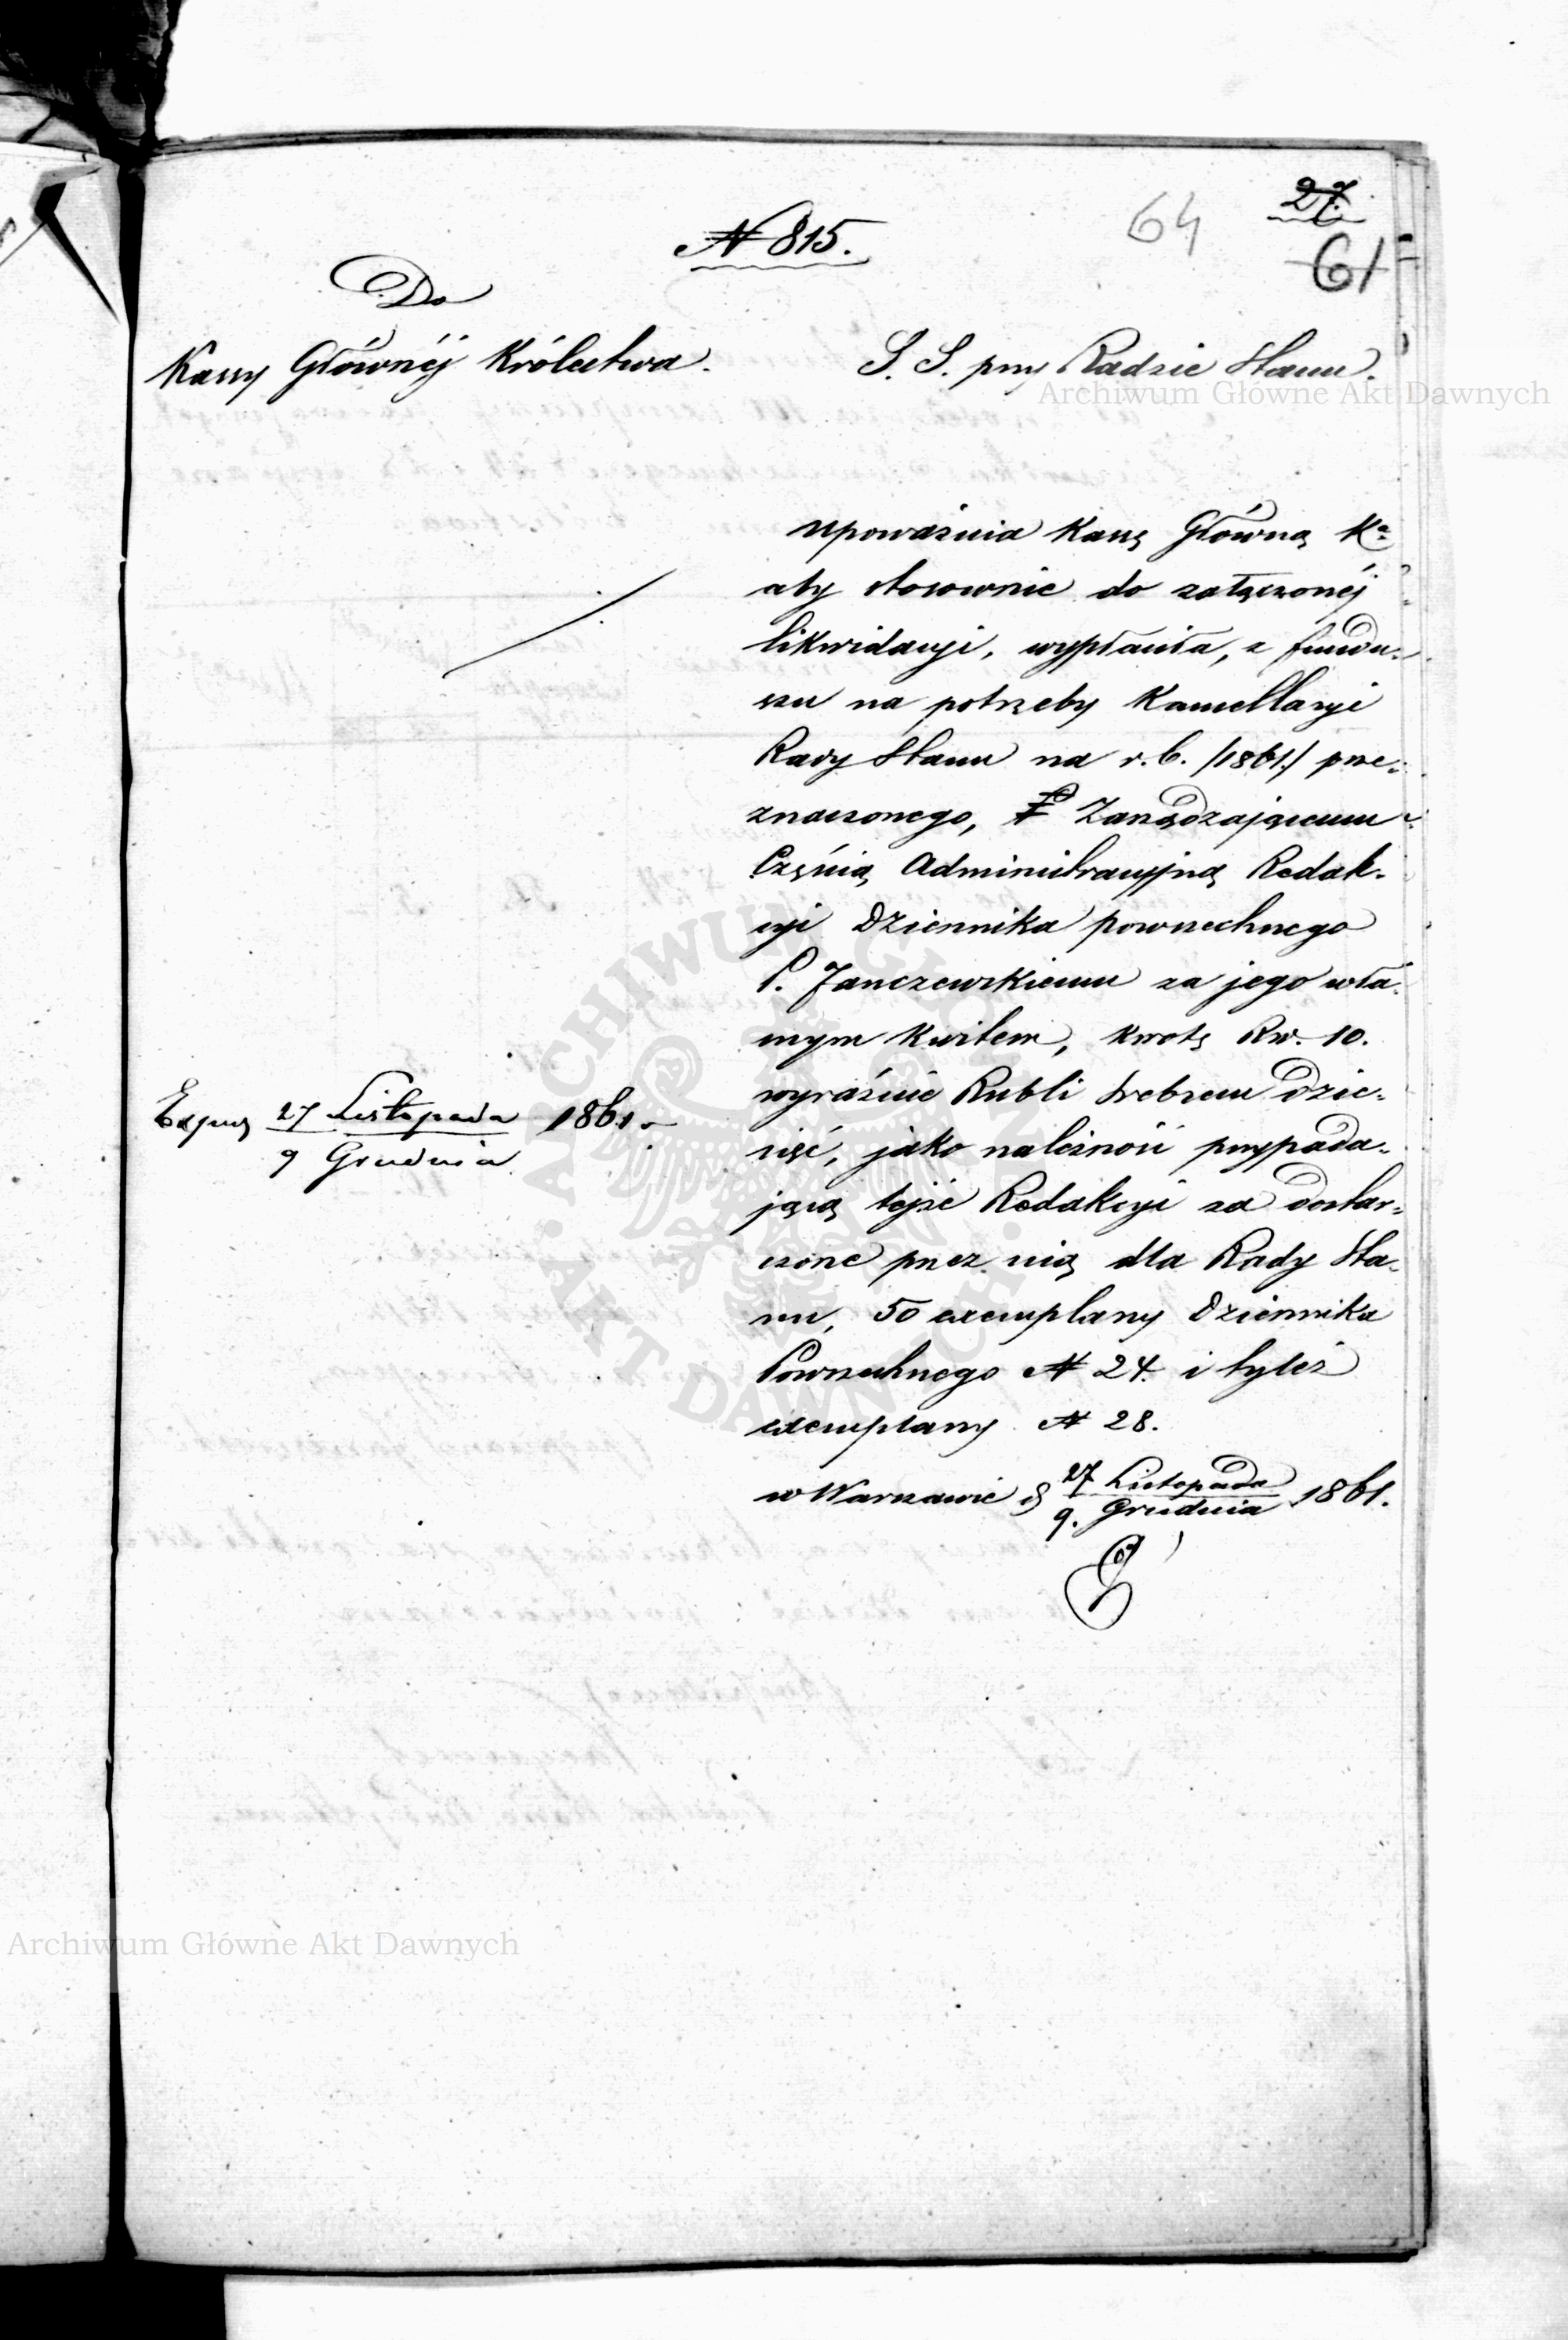 27.
64
61
N 815.
Do
Kassy Głównéj Królestwa.
S. S. przy Radzie Stanu.
Archiwum Główne Akt Dawnych
upoważnia Kassę Główną Kª
aby stosownie do załączonéj
likwidacyi, wypłaciła, z fundu-
szu na potrzeby Kancellaryi
Rady Stanu na r. b. /1861./ prze-
znaczonego, Zarządzającemu
Częścią Administracyjną Redak-
cyi Dziennika powszechnego
P. Janczewskiemu za jego wła-
snym kwitem, kwotę Rsr. 10.
wyraźnie Rubli srebrem dzie-
sięć, jako należność przypada-
jącą tejże Redakcyi za dostar-
czone przez nią dla Rady Sta-
nu, 50 exemplarzy Dziennika
Powszechnego N 24. i tyleż
exemplarzy N 28.
w Warszawie d 27 Listopada / 9. Grudnia 1861.
27 Listopada / 9 Grudnia 1861.
ARCHIWUM GŁÓWNE AKT DAWNYCH
Archiwum Główne Akt Dawnych